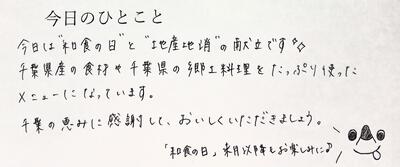 今日のひとこと
今日は"和食の日"と"地産地消"の献立です
千葉県産の食材や千葉県の郷土料理をたっぷり使った
メニューになっています。
千葉の恵みに感謝して、おいしくいただきましょう。
「和食の日」来月以降もお楽しみに♪